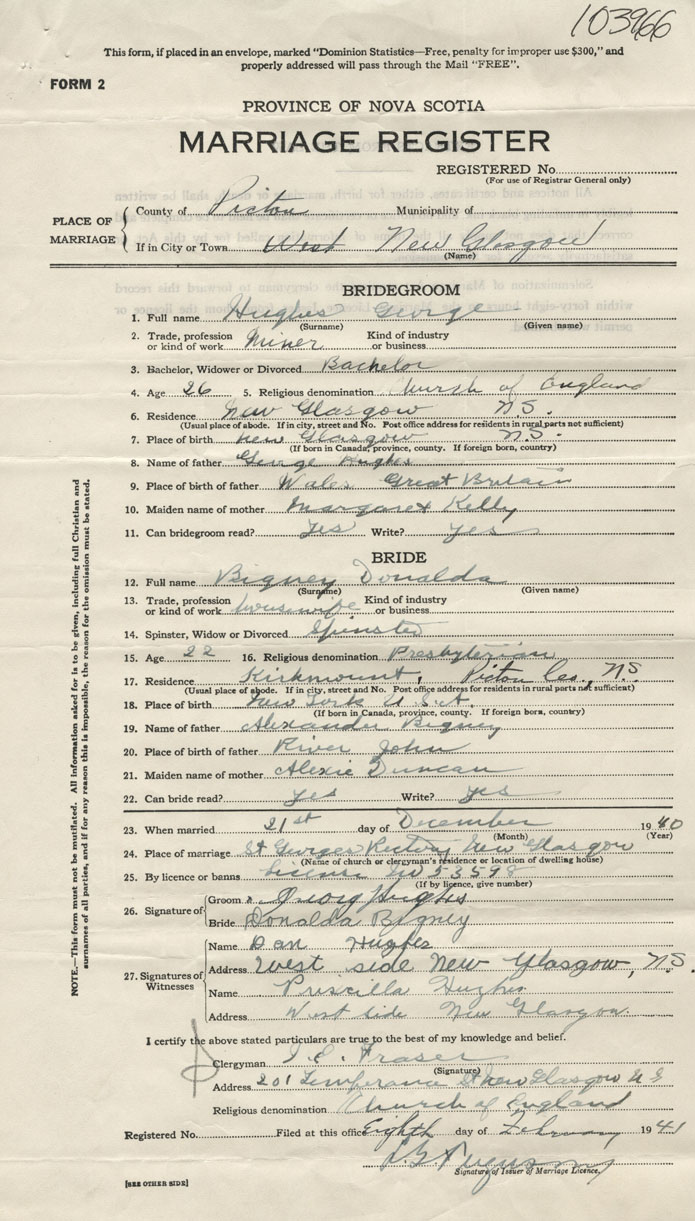 103966
This form, if placed in an envelope, marked "Dominion Statistics—Free, penalty for improper use $300," and
properly addressed will pass through the Mail "FREE".
FORM 2
PROVINCE OF NOVA SCOTIA
MARRIAGE REGISTER
REGISTERED No.
(For use of Registrar General only)
PLACE OF MARRIAGE
County of Pictou Municipality of
If in City or Town West New Glasgow
(Name)
BRIDEGROOM
1. Full name Hughes George
(Surname) (Given name)
2. Trade, profession or kind of work Miner Kind of industry or business
3. Bachelor, Widower or Divorced Bachelor
4. Age 26 5. Religious denomination Church of England
6. Residence New Glasgow N.S.
(Usual place of abode. If in city, street and No. Post office address for residents in rural parts not sufficient)
7. Place of birth New Glasgow N.S.
(If born in Canada, province, county. If foreign born, country)
8. Name of father George Hughes
9. Place of birth of father Wales Great Britain
10. Maiden name of mother Margaret Kelly
11. Can bridegroom read? Yes Write? Yes
BRIDE
12. Full name Bigney Donalda
(Surname) (Given name)
13. Trade, profession or kind of work housewife Kind of industry or business
14. Spinster, Widow or Divorced Spinster
15. Age 22 16. Religious denomination Presbyterian
17. Residence Kirkmount, Pictou Co., N.S.
(Usual place of abode. If in city, street and No. Post office address for residents in rural parts not sufficient)
18. Place of birth New York U.S.A.
(If born in Canada, province, county. If foreign born, country)
19. Name of father Alexander Bigney
20. Place of birth of father River John
21. Maiden name of mother Alexie Duncan
22. Can bride read? yes Write? yes
23. When married 21st day of December 1940
(Month) (Year)
24. Place of marriage St Georges Rectory New Glasgow
(Name of church or clergyman's residence or location of dwelling house)
25. By licence or banns License No 53598
(If by licence, give number)
26. Signature of
Groom George Hughes
Bride Donalda Bigney
27. Signatures of Witnesses
Name Dan Hughes
Address West side New Glasgow, N.S.
Name Priscilla Hughes
Address West side New Glasgow.
I certify the above stated particulars are true to the best of my knowledge and belief.
Clergyman Fraser
(Signature)
Address 201 Temperance St New Glasgow N S
Religious denomination Church of England
Registered No. Filed at this office Eighth day of February 1941
Signature of Issuer of Marriage Licence.
[SEE OTHER SIDE]
NOTE.—This form must not be mutilated. All information asked for is to be given, including full Christian and
surnames of all parties, and if for any reason this is impossible, the reason for the omission must be stated.